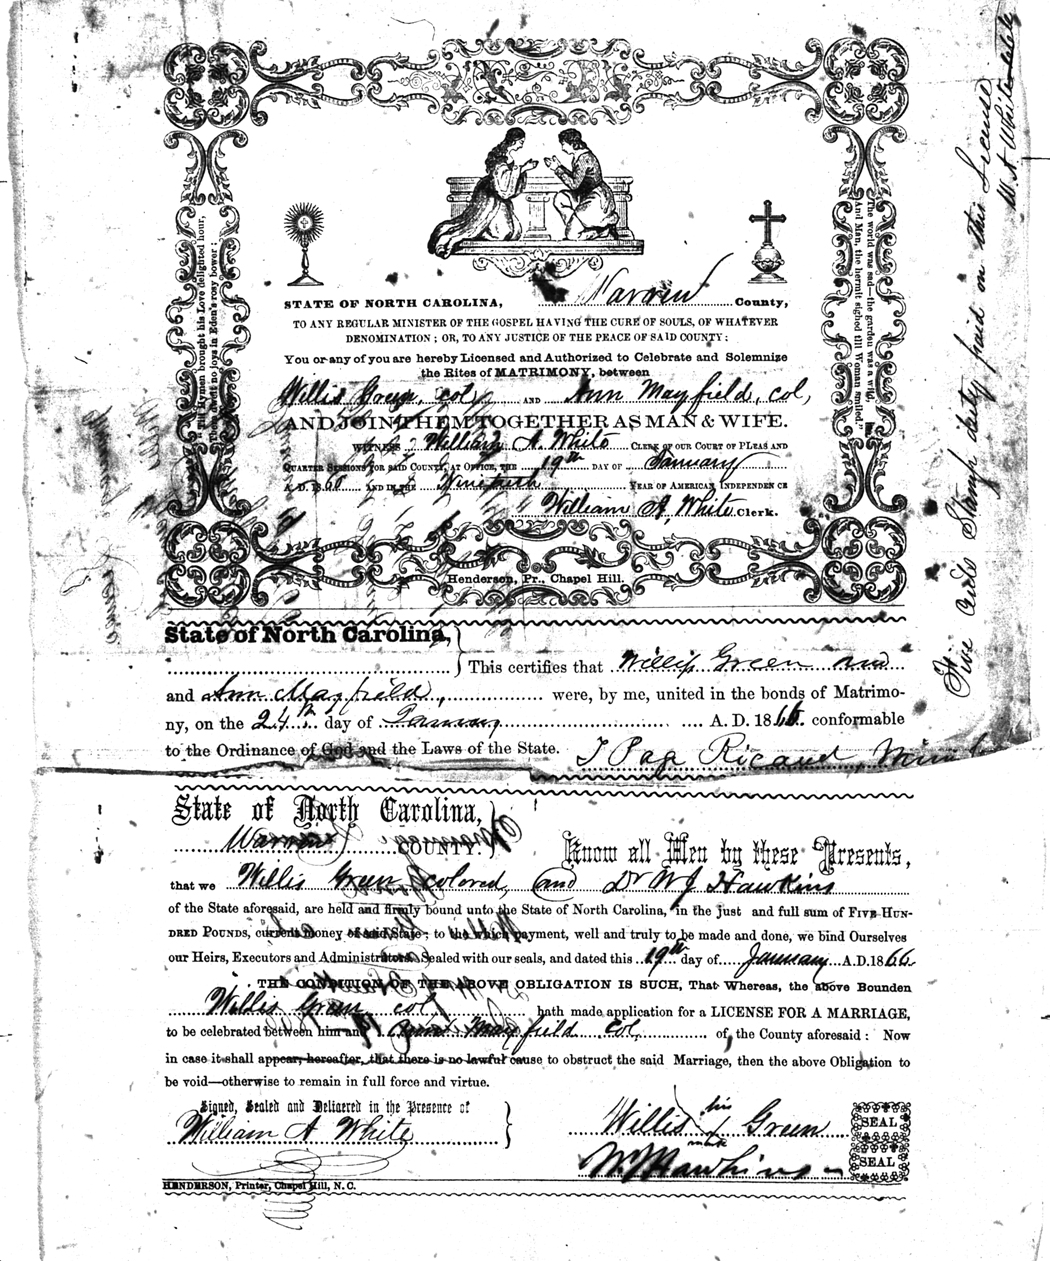 "Till Hymen brought his Love delighted hour,
There dwelt no joys in Eden's rosy bower;
The world was sad—the garden was a wild,
And Man, the hermit sighed till Woman smiled."
Five cents Stamp duty paid on this License
W. A. White
STATE OF NORTH CAROLINA, Warren County,
TO ANY REGULAR MINISTER OF THE GOSPEL HAVING THE CURE OF SOULS, OF WHATEVER
DENOMINATION; OR, TO ANY JUSTICE OF THE PEACE OF SAID COUNTY:
You or any of you are hereby Licensed and Authorized to Celebrate and Solemnize
the Rites of MATRIMONY, between
Willis Green, col, AND Ann Mayfield, col,
AND JOIN THEM TOGETHER AS MAN & WIFE.
WITNESS William A. White CLERK OF OUR COURT OF PLEAS AND
QUARTER SESSIONS FOR SAID COUNTY, AT OFFICE, THE 19th DAY OF January
A. D. 1866 AND IN THE Ninetieth YEAR OF AMERICAN INDEPENDENCE
William A. White Clerk.
Henderson, Pr., Chapel Hill.
State of North Carolina,
This certifies that Willis Green
and Ann Mayfield, were, by me, united in the bonds of Matrimo-
ny, on the 24th day of January A. D. 1866. conformable
to the Ordinance of God and the Laws of the State.
T Pag Ricaud
State of North Carolina,
Warren COUNTY. Know all Men by these Presents,
that we Willis Green colored, and Dr W J Hawkins
of the State aforesaid, are held and firmly bound unto the State of North Carolina, in the just and full sum of FIVE HUN-
DRED POUNDS, current money of said State; to the which payment, well and truly to be made and done, we bind Ourselves
our Heirs, Executors and Administrators. Sealed with our seals, and dated this 19th day of January A.D. 1866
THE CONDITION OF THE ABOVE OBLIGATION IS SUCH, That Whereas, the above Bounden
Willis Green col, hath made application for a LICENSE FOR A MARRIAGE,
to be celebrated between him and Ann Mayfield col, of the County aforesaid: Now
in case it shall appear, hereafter, that there is no lawful cause to obstruct the said Marriage, then the above Obligation to
be void—otherwise to remain in full force and virtue.
Signed, Sealed and Delivered in the Presence of
William A White
his
Willis X Green SEAL
mark
W J Hawkins SEAL
HENDERSON, Printer, Chapel Hill, N. C.